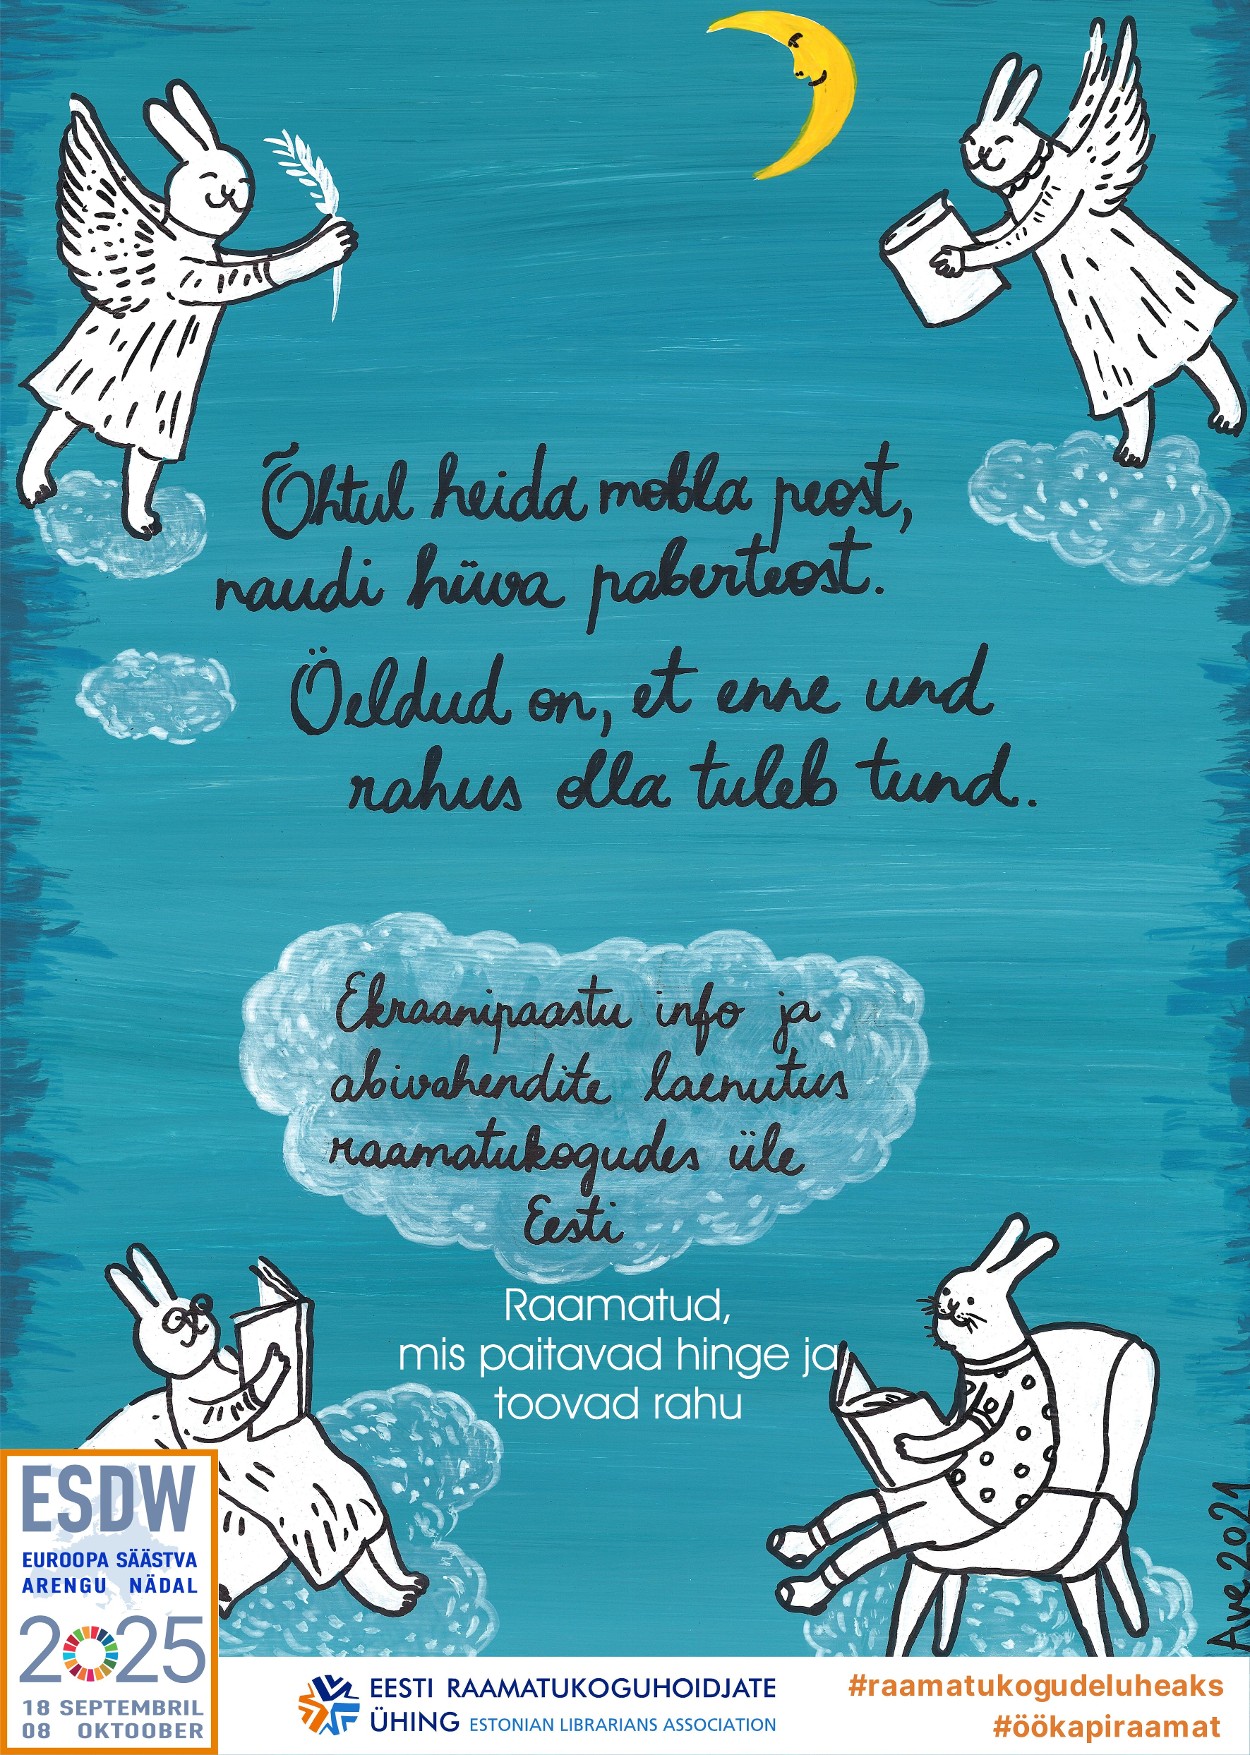 Õhtul heida mobla peost,
naudi hüva paberteost.
Öeldud on, et enne und
rahus olla tuleb tund.
Ekraanipaastu info ja
abivahendite laenutus
raamatukogudes üle
Eesti
Raamatud,
mis paitavad hinge ja
toovad rahu
Ave 2021
ESDW
EUROOPA SÄÄSTVA
ARENGU NÄDAL
2025
18 SEPTEMBRIL
08 OKTOOBER
EESTI RAAMATUKOGUHOIDJATE
ÜHING ESTONIAN LIBRARIANS ASSOCIATION
#raamatukogudeluheaks
#öökapiraamat